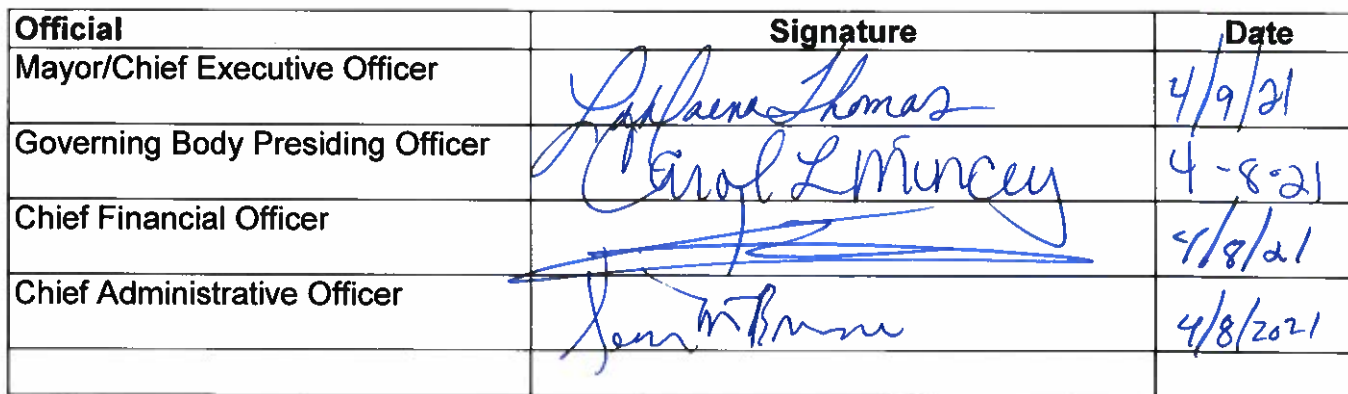 Official Signature Date
Mayor/Chief Executive Officer Thomas 4/9/21
Governing Body Presiding Officer Carol L Muncey 4-8-21
Chief Financial Officer 4/8/21
Chief Administrative Officer 4/8/2021